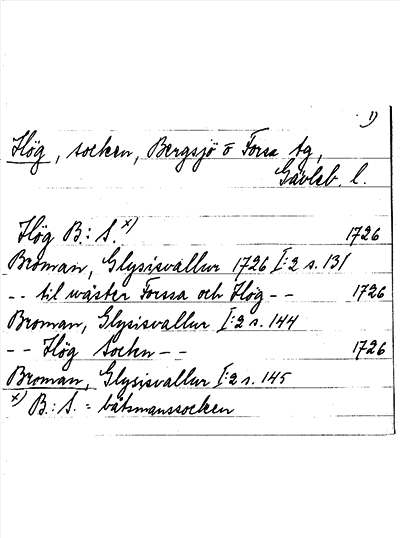 1)
Hög, socken, Bergsjö o Forsa tg,
Gävleb. l.
Hög B.: S. x) 1726
Broman, Glysisvallur 1726 I:2 s. 131
-- til wäster Forssa och Hög -- 1726
Broman, Glysisvallur I:2 s. 144
-- Hög Socken -- 1726
Broman, Glysisvallur I:2 s. 145
x) B.: S. = båtsmanssocken